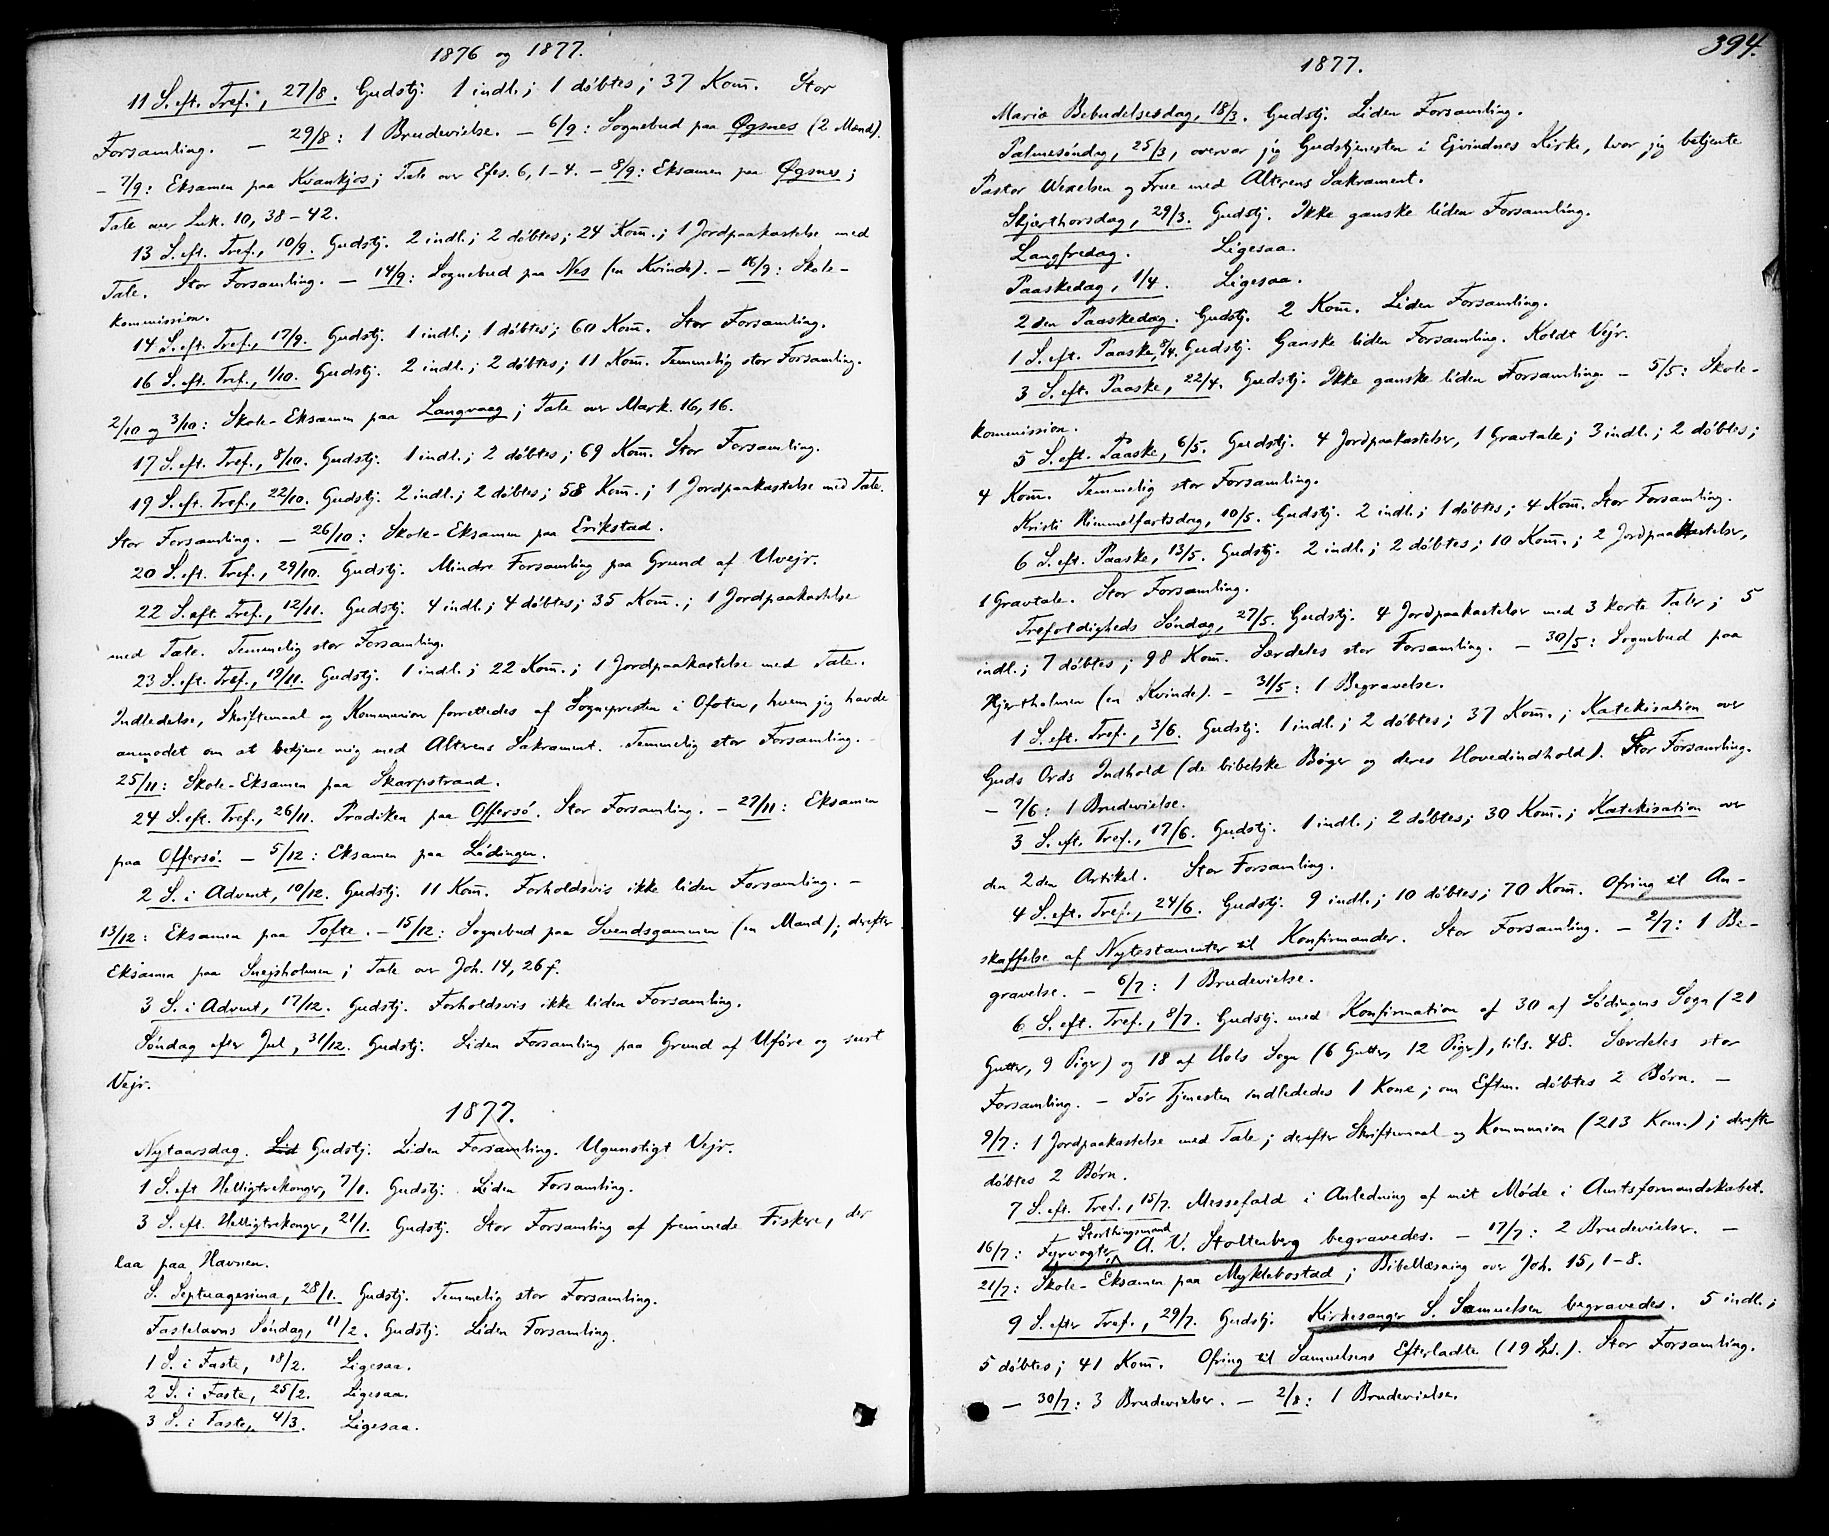 1876 og 1877.
11 S. eft. Tref., 27/8. Gudstj. 1 indl.; 1 døbtes; 37 Kom̅. Stor
Forsamling. — 29/8: 1 Brudevielse. — 6/9: Sognebud paa Øgsnes (2 Mænd).
— 7/9: Eksamen paa Kvankjos; Tale over Efes. 6, 1-4. — 8/9: Eksamen paa Øgsnes;
Tale over Luk. 10, 38-42.
13 S. eft. Tref., 10/9. Gudstj. 2 indl.; 2 døbtes; 24 Kom̅.; 1 Jordpaakastelse med
Tale. Stor Forsamling. — 14/9: Sognebud paa Nes (en Kvinde). — 16/9: Skole-
kommission.
14 S. eft. Tref., 17/9. Gudstj. 1 indl.; 1 døbtes; 60 Kom̅. Stor Forsamling.
16 S. eft. Tref., 1/10. Gudstj. 2 indl.; 2 døbtes; 11 Kom̅. Temmelig stor Forsamling.
2/10 og 3/10: Skole-Eksamen paa Langvaag; Tale over Mark. 16, 16.
17 S. eft. Tref., 8/10. Gudstj. 1 indl.; 2 døbtes; 69 Kom̅. Stor Forsamling.
19 S. eft. Tref., 22/10. Gudstj. 2 indl.; 2 døbtes; 58 Kom̅.; 1 Jordpaakastelse med Tale.
Stor Forsamling. — 26/10: Skole-Eksamen paa Erikstad.
20 S. eft. Tref., 29/10. Gudstj. Mindre Forsamling paa Grund af Uvejr.
22 S. eft. Tref., 12/11. Gudstj. 4 indl.; 4 døbtes; 35 Kom̅.; 1 Jordpaakastelse
med Tale. Temmelig stor Forsamling.
23 S. eft. Tref., 19/11. Gudstj. 1 indl.; 22 Kom̅.; 1 Jordpaakastelse med Tale.
Indledelse, Skriftemaal og Kommunion forrettedes af Sognepresten i Ofoten, hvem jeg havde
anmodet om at betjene mig med Alterens Sakrament. Temmelig stor Forsamling. —
25/11: Skole-Eksamen paa Skarpstrand.
24 S. eft. Tref., 26/11. Prædiken paa Offersø. Stor Forsamling. — 27/11: Eksamen
paa Offersø. — 5/12: Eksamen paa Lødingen.
2 S. i Advent, 10/12. Gudstj. 11 Kom̅. Forholdsvis ikke liden Forsamling. —
13/12: Eksamen paa Tofte. — 15/12: Sognebud paa Svendsgammen (en Mand); derefter
Eksamen paa Snejsholmen; Tale over Joh. 14, 26 f.
3 S. i Advent, 17/12. Gudstj. Forholdsvis ikke liden Forsamling.
Søndag efter Jul, 31/12. Gudstj. Liden Forsamling paa Grund af Uføre og surt
Vejr.
1877.
Nytaarsdag. Lid Gudstj. Liden Forsamling. Ugunstigt Vejr.
1 S. eft Helligtrekonger, 7/1. Gudstj. Liden Forsamling.
3 S. eft. Helligtrekonger, 21/1. Gudstj. Stor Forsamling af fremmede Fiskere, der
laa paa Havnen.
S. Septuagesima, 28/1. Gudstj. Temmelig stor Forsamling.
Fastelavns Søndag, 11/2. Gudstj. Liden Forsamling.
1 S. i Faste, 18/2. Ligesaa.
2 S. i Faste, 25/2. Ligesaa.
3 S. i Faste, 4/3. Ligesaa.
394.
1877.
Mariæ Bebudelsesdag, 18/3. Gudstj. Liden Forsamling.
Palmesøndag, 25/3, overvar jeg Gudstjenesten i Ejvindnes Kirke, hvor jeg betjente
Pastor Wexelsen og Frue med Alterens Sakrament.
Skjærthorsdag, 29/3. Gudstj. Ikke ganske liden Forsamling.
Langfredag. Ligesaa.
Paaskedag, 1/4. Ligesaa.
2den Paaskedag. Gudstj. 2 Kom̅. Liden Forsamling.
1 S. eft. Paaske, 8/4. Gudstj. Ganske liden Forsamling. Koldt Vejr.
3 S. eft. Paaske, 22/4. Gudstj. Ikke ganske liden Forsamling — 5/5: Skole-
kommission.
5 S. eft. Paaske, 6/5. Gudstj. 4 Jordpaakastelser, 1 Gravtale; 3 indl.; 2 døbtes;
4 Kom̅. Temmelig stor Forsamling.
Kristi Himmelfartsdag, 10/5. Gudstj. 2 indl.; 1 døbtes; 4 Kom̅. Stor Forsamling.
6 S. eft. Paaske, 13/5. Gudstj. 2 indl.; 2 døbtes; 10 Kom̅.; 2 Jordpaakastelser,
1 Gravtale. Stor Forsamling.
Trefoldigheds Søndag, 27/5. Gudstj. 4 Jordpaakastelser med 3 korte Taler; 5
indl.; 7 døbtes; 98 Kom̅. Særdeles stor Forsamling. — 30/5: Sognebud paa
Hjertholmen (en Kvinde). — 31/5: 1 Begravelse.
1 S. eft. Tref., 3/6. Gudstj. 1 indl.; 2 døbtes; 37 Kom̅.; Katekisation over
Guds Ords Indhold (de bibelske Bøger og deres Hovedindhold). Stor Forsamling.
— 7/6: 1 Brudevielse.
3 S. eft. Tref., 17/6. Gudstj. 1 indl.; 2 døbtes; 30 Kom̅.; Katekisation over
den 2den Artikel. Stor Forsamling.
4 S. eft. Tref., 24/6. Gudstj. 9 indl.; 10 døbtes; 70 Kom̅. Ofring til An-
skaffelse af Nytestamenter til Konfirmander. Stor Forsamling. — 2/7: 1 Be-
gravelse. — 6/7: 1 Brudevielse.
6 S. eft. Tref., 8/7. Gudstj. med Konfirmation af 30 af Lødingens Sogn (21
Gutter, 9 Piger) og 18 af Hols Sogn (6 Gutter, 12 Piger), tils. 48. Særdeles stor
Forsamling. — Før Tjenesten indlededes 1 Kone; om Eftm. døbtes 2 Børn. —
9/7: 1 Jordpaakastelse med Tale; derefter Skriftemaal og Kommunion (213 Kom.); derefter
døbtes 2 Børn.
7 S. eft. Tref., 15/7. Messefald i Anledning af mit Møde i Amtsformandskabet.
Storthingsmand
16/7: Fyrvogter A. V. Stoltenberg begravedes. — 17/7: 2 Brudevielser. —
21/7: Skole-Eksamen paa Myklebostad; Bibellæsning over Joh. 15, 1-8.
9 S. efter Tref., 29/7. Gudstj. Kirkesanger S. Samuelsen begravedes. 5 indl.;
5 døbtes; 41 Kom̅. Ofring til Samuelsens Efterladte (19 Spd.). Stor Forsamling.
— 30/7: 3 Brudevielser. — 2/8: 1 Brudevielse.